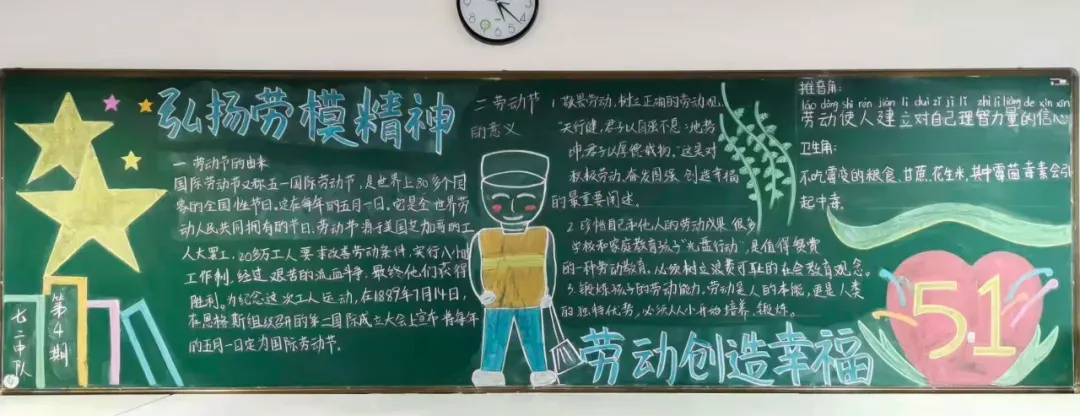 弘扬劳模精神
一 劳动节的由来
国际劳动节又称五一国际劳动节,是世界上80多个国
家的全国性节日。定在每年的五月一日。它是全世界劳
动人民共同拥有的节日。劳动节源于美国芝加哥的工
人大罢工,20多万工人要求改善劳动条件,实行八小时
工作制,经过艰苦的流血斗争,最终他们获得
胜利。为纪念这次工人运动,在1889年7月14日,
在恩格斯组织召开的第二国际成立大会上宣布将每年
的五月一日定为国际劳动节。
第4期
七二中队
二 劳动节
的意义
1. 敬畏劳动,树立正确的劳动观。
"天行健,君子以自强不息;地势
坤,君子以厚德载物。"这是对
积极劳动、奋发图强、创造幸福
的最重要阐述。
2. 珍惜自己和他人的劳动成果。很多
学校和家庭教育孩子"光盘行动",是值得赞赏
的一种劳动教育,必须树立浪费可耻的社会教育观念。
3. 锻炼孩子的劳动能力。劳动是人的本能,更是人类
的独特优势,必须从小开始培养、锻炼。
劳动创造幸福
推普角:
láo dòng shǐ rén jiàn lì duì zì jǐ lǐ zhì lì liàng de xìn xīn
劳动使人建立对自己理智力量的信心
卫生角:
不吃霉变的粮食、甘蔗、花生米,其中霉菌毒素会引
起中毒。
5.1